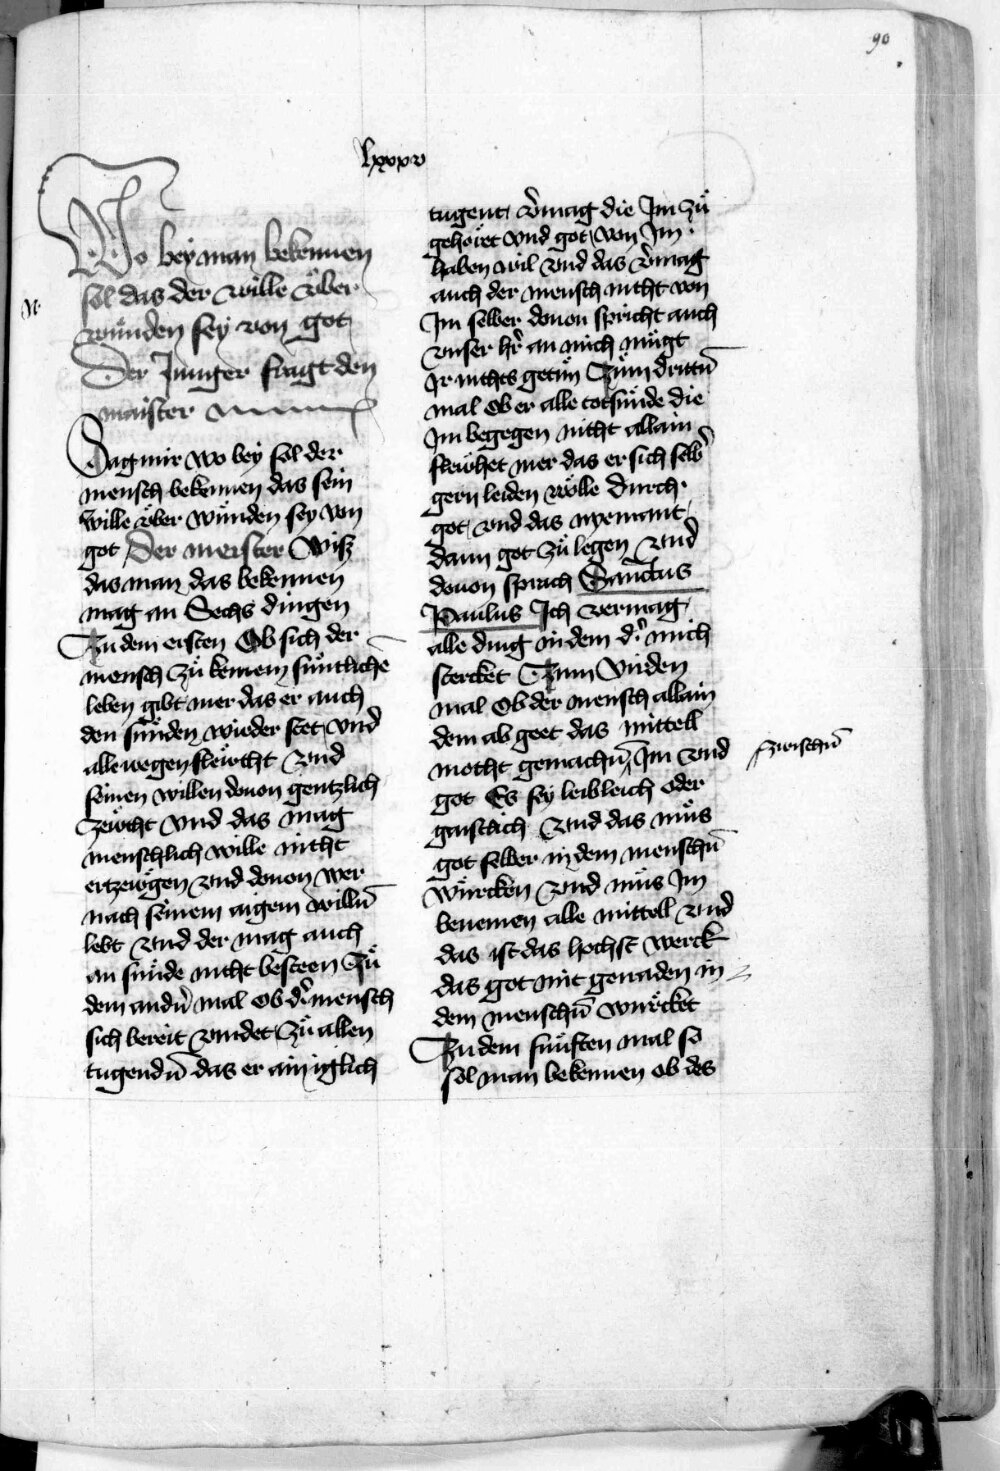 90
lxxxv
Wo bey man bekennen
sol das der wille vͤber
wunden sey von got
Der Junger fragt den
maister
Sag mir wo bey sol der
mensch bekennen das sein
wille vͤber wunden sey von
got Der meister Wiß
das man das bekennen
mag an Sechs dingen
Zu dem ersten Ob sich der
mensch zuͤ keinem suͤntlichē
leben gibt mer das er auch
den sunden wieder stet vnd
allewegen fleuͤcht Vnd
seinen willen douon gentzlich
zeuͤcht vnd das mag
menschlich wille nicht
ertzeuͤgen vnd douon wer
nach seinem aigem willn̄
lebt vnd der mag auch
an suͤnde nicht besteen Zuͤ
dem andn̄ mal ob dʾ mensch
sich bereit vindet zuͤ allen
tugendn̄ das er ain iglich
tugent vʾmag die Im zuͤ
gehoͤret vnd got von Im
haben wil vnd das vʾmag
auch der mensch nicht von
Im selber douon spricht auch
vnser hʾr an mich muͤgt
Ir nichts getuͤn Zuͤm drittn̄
mal Ob er alle totsuͤnde die
Im begegen nicht allain
fleuͤhet mer das er sich selbʾ
gern leiden woͤlle durch
got vnd das nyemant
dann got zuͤ legen Vnd
douon sprach Sanctus
Paulus Ich vermag
alle ding in dem dʾ mich
stercket Zum Virden
mal Ob der mensch allain
dem ab geet das mittell
mocht gemachn̄ Im vnd
zwischn̄
got Es sey leibleich oder
gaistlich Vnd das muͤs
got selber in dem menschn̄
wuͤrcken Vnd muͤs Im
benemen alle mittell vnd
das ist das hochst werck
das got mit genaden in
dem menschn̄ wuͤrcket
Zu dem fuͤnften mal so
sol man bekennen ob des